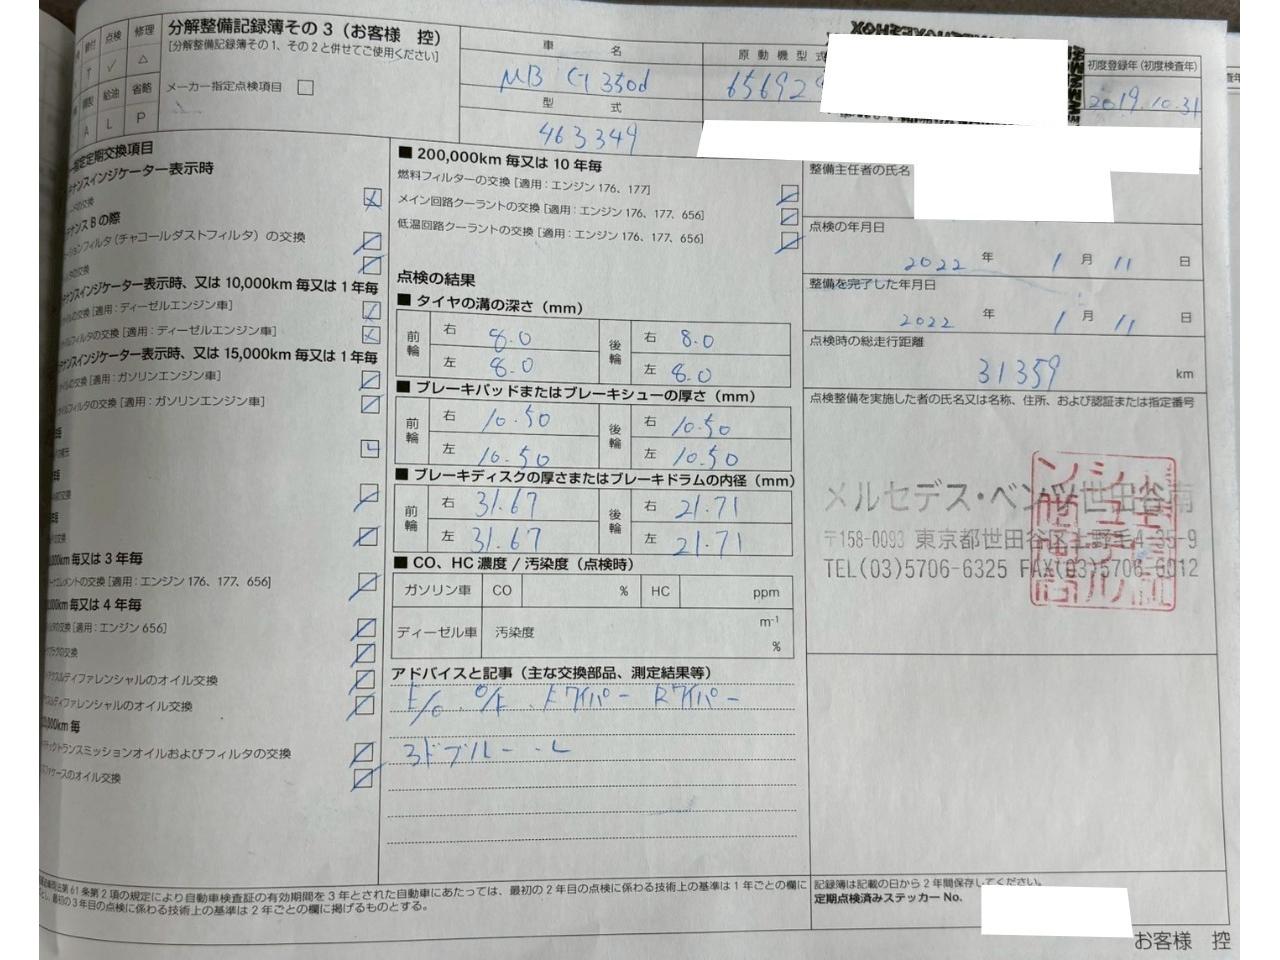 分解整備記録簿その3(お客様 控)
[分解整備記録簿その1、その2と併せてご使用ください]
メーカー指定点検項目
点検 修理
T ✓ △
給油 省略
A L P
車名
MB G350d
型式
463349
原動機型式
65692
初度登録年(初度検査年)
2019.10.31
指定定期交換項目
テナンスインジケーター表示時
の交換
ナンスBの際
ションフィルタ(チャコールダストフィルタ)の交換
タの交換
テナンスインジケーター表示時、又は10,000km毎又は1年毎
オイルの交換[適用:ディーゼルエンジン車]
オイルフィルタの交換[適用:ディーゼルエンジン車]
テナンスインジケーター表示時、又は15,000km毎又は1年毎
オイルの交換[適用:ガソリンエンジン車]
オイルフィルタの交換[適用:ガソリンエンジン車]
毎
の補充
年毎
の交換
年毎
の交換
,000km毎又は3年毎
エレメントの交換[適用:エンジン176、177、656]
,000km毎又は4年毎
の交換[適用:エンジン656]
プラグの交換
アクスルディファレンシャルのオイル交換
アクスルディファレンシャルのオイル交換
,000km毎
マチックトランスミッションオイルおよびフィルタの交換
スファケースのオイル交換
■ 200,000km毎又は10年毎
燃料フィルターの交換[適用:エンジン176、177]
メイン回路クーラントの交換[適用:エンジン176、177、656]
低温回路クーラントの交換[適用:エンジン176、177、656]
点検の結果
■ タイヤの溝の深さ(mm)
前輪 右 8.0 後輪 右 8.0
左 8.0 左 8.0
■ ブレーキパッドまたはブレーキシューの厚さ(mm)
前輪 右 10.50 後輪 右 10.50
左 10.50 左 10.50
■ ブレーキディスクの厚さまたはブレーキドラムの内径(mm)
前輪 右 31.67 後輪 右 21.71
左 31.67 左 21.71
■ CO、HC濃度/汚染度(点検時)
ガソリン車 CO % HC ppm
ディーゼル車 汚染度 m⁻¹
%
アドバイスと記事(主な交換部品、測定結果等)
E/O O/E Fワイパー Rワイパー
アドブルー
整備主任者の氏名
点検の年月日
2022 年 1 月 11 日
整備を完了した年月日
2022 年 1 月 11 日
点検時の総走行距離
31359 km
点検整備を実施した者の氏名又は名称、住所、および認証または指定番号
メルセデス・ベンツ世田谷南
〒158-0093 東京都世田谷区上野毛4-35-9
TEL(03)5706-6325 FAX(03)5706-6012
記録簿は記載の日から2年間保存してください。
定期点検済みステッカーNo.
法第61条第2項の規定により自動車検査証の有効期間を3年とされた自動車にあたっては、最初の2年目の点検に係わる技術上の基準は1年ごとの欄に
し、最初の3年目の点検に係わる技術上の基準は2年ごとの欄に掲げるものとする。
お客様 控